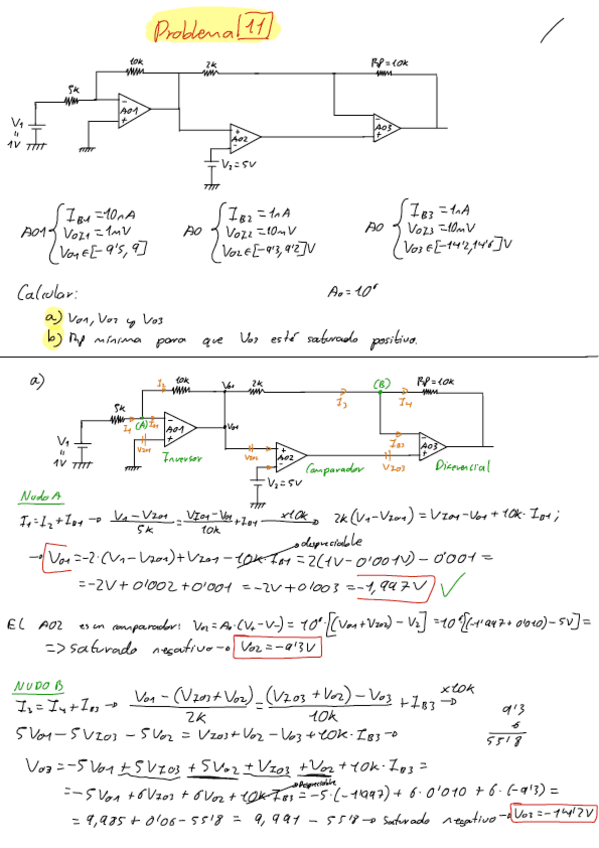 Problema 11
10k
2k
Rp=10k
5k
V1
"
1V
AO1
AO2
AO3
V2=5V
AO1 { IB1=10nA
VOZ1=1mV
VO1∈[-9'5, 9]
AO { IB2=1nA
VOZ2=10mV
VO2∈[-9'3, 9'2]V
AO { IB3=1nA
VOZ3=10mV
VO3∈[-14'2, 14'6]V
Calcular:
Ao=10⁶
a) VO1, VO2 y VO3
b) Rp mínima para que VO3 esté saturado positivo.
a)
I2 10k VO1 2k I3 (B) I4 Rp=10k
5k I1 (A) IB1 AO1 VO1 IB3
V1
"
1V
VZO1 Inversor VZO2 AO2 Comparador VZO3 AO3 Diferencial
V2=5V
Nudo A
I1=I2+IB1 → V1-VZO1/5k = VZO1-VO1/10k + IB1 x10k → 2k(V1-VZO1)=VZO1-VO1+10k·IB1;
→ VO1=-2·(V1-VZO1)+VZO1-10k·IB1 despreciable =2(1V-0'001V)-0'001=
=-2V+0'002+0'001=-2V+0'003=-1,997V ✓
El AO2 es un comparador: VO2=Ao·(V+-V-)=10⁶·[(VO1+VZO2)-V2]=10⁶[(-1'997+0'010)-5V]=
=> saturado negativo → VO2=-9'3V
NUDO B
I3=I4+IB3 → VO1-(VZO3+VO2)/2k = (VZO3+VO2)-VO3/10k + IB3 x10k →
5VO1-5VZO3-5VO2=VZO3+VO2-VO3+10k·IB3→
9'3
6
55'8
VO3=-5VO1+5VZO3+5VO2+VZO3+VO2+10k·IB3=
=-5VO1+6VZO3+6VO2+10k·IB3 Despreciable =-5·(-1'997)+6·0'010+6·(-9'3)=
=9,985+0'06-55'8=9,991-55'8→ saturado negativo → VO3=-14'2V